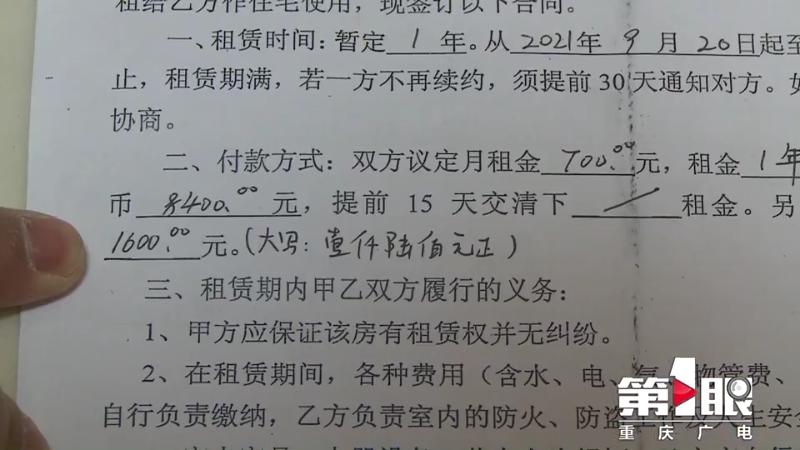 租给乙方作住宅使用，现签订以下合同。
一、租赁时间：暂定 1 年。从 2021年 9 月 20日起至
止，租赁期满，若一方不再续约，须提前 30 天通知对方。
协商。
二、付款方式：双方议定月租金 700.00元，租金 1年
币 8400.00 元，提前 15 天交清下 / 租金。另
1600.00 元。(大写：壹仟陆佰元正)
三、租赁期内甲乙双方履行的义务：
1、甲方应保证该房有租赁权并无纠纷。
2、在租赁期间，各种费用（含水、电、气、物管费、
自行负责缴纳，乙方负责室内的防火、防盗
第1眼
重庆广电